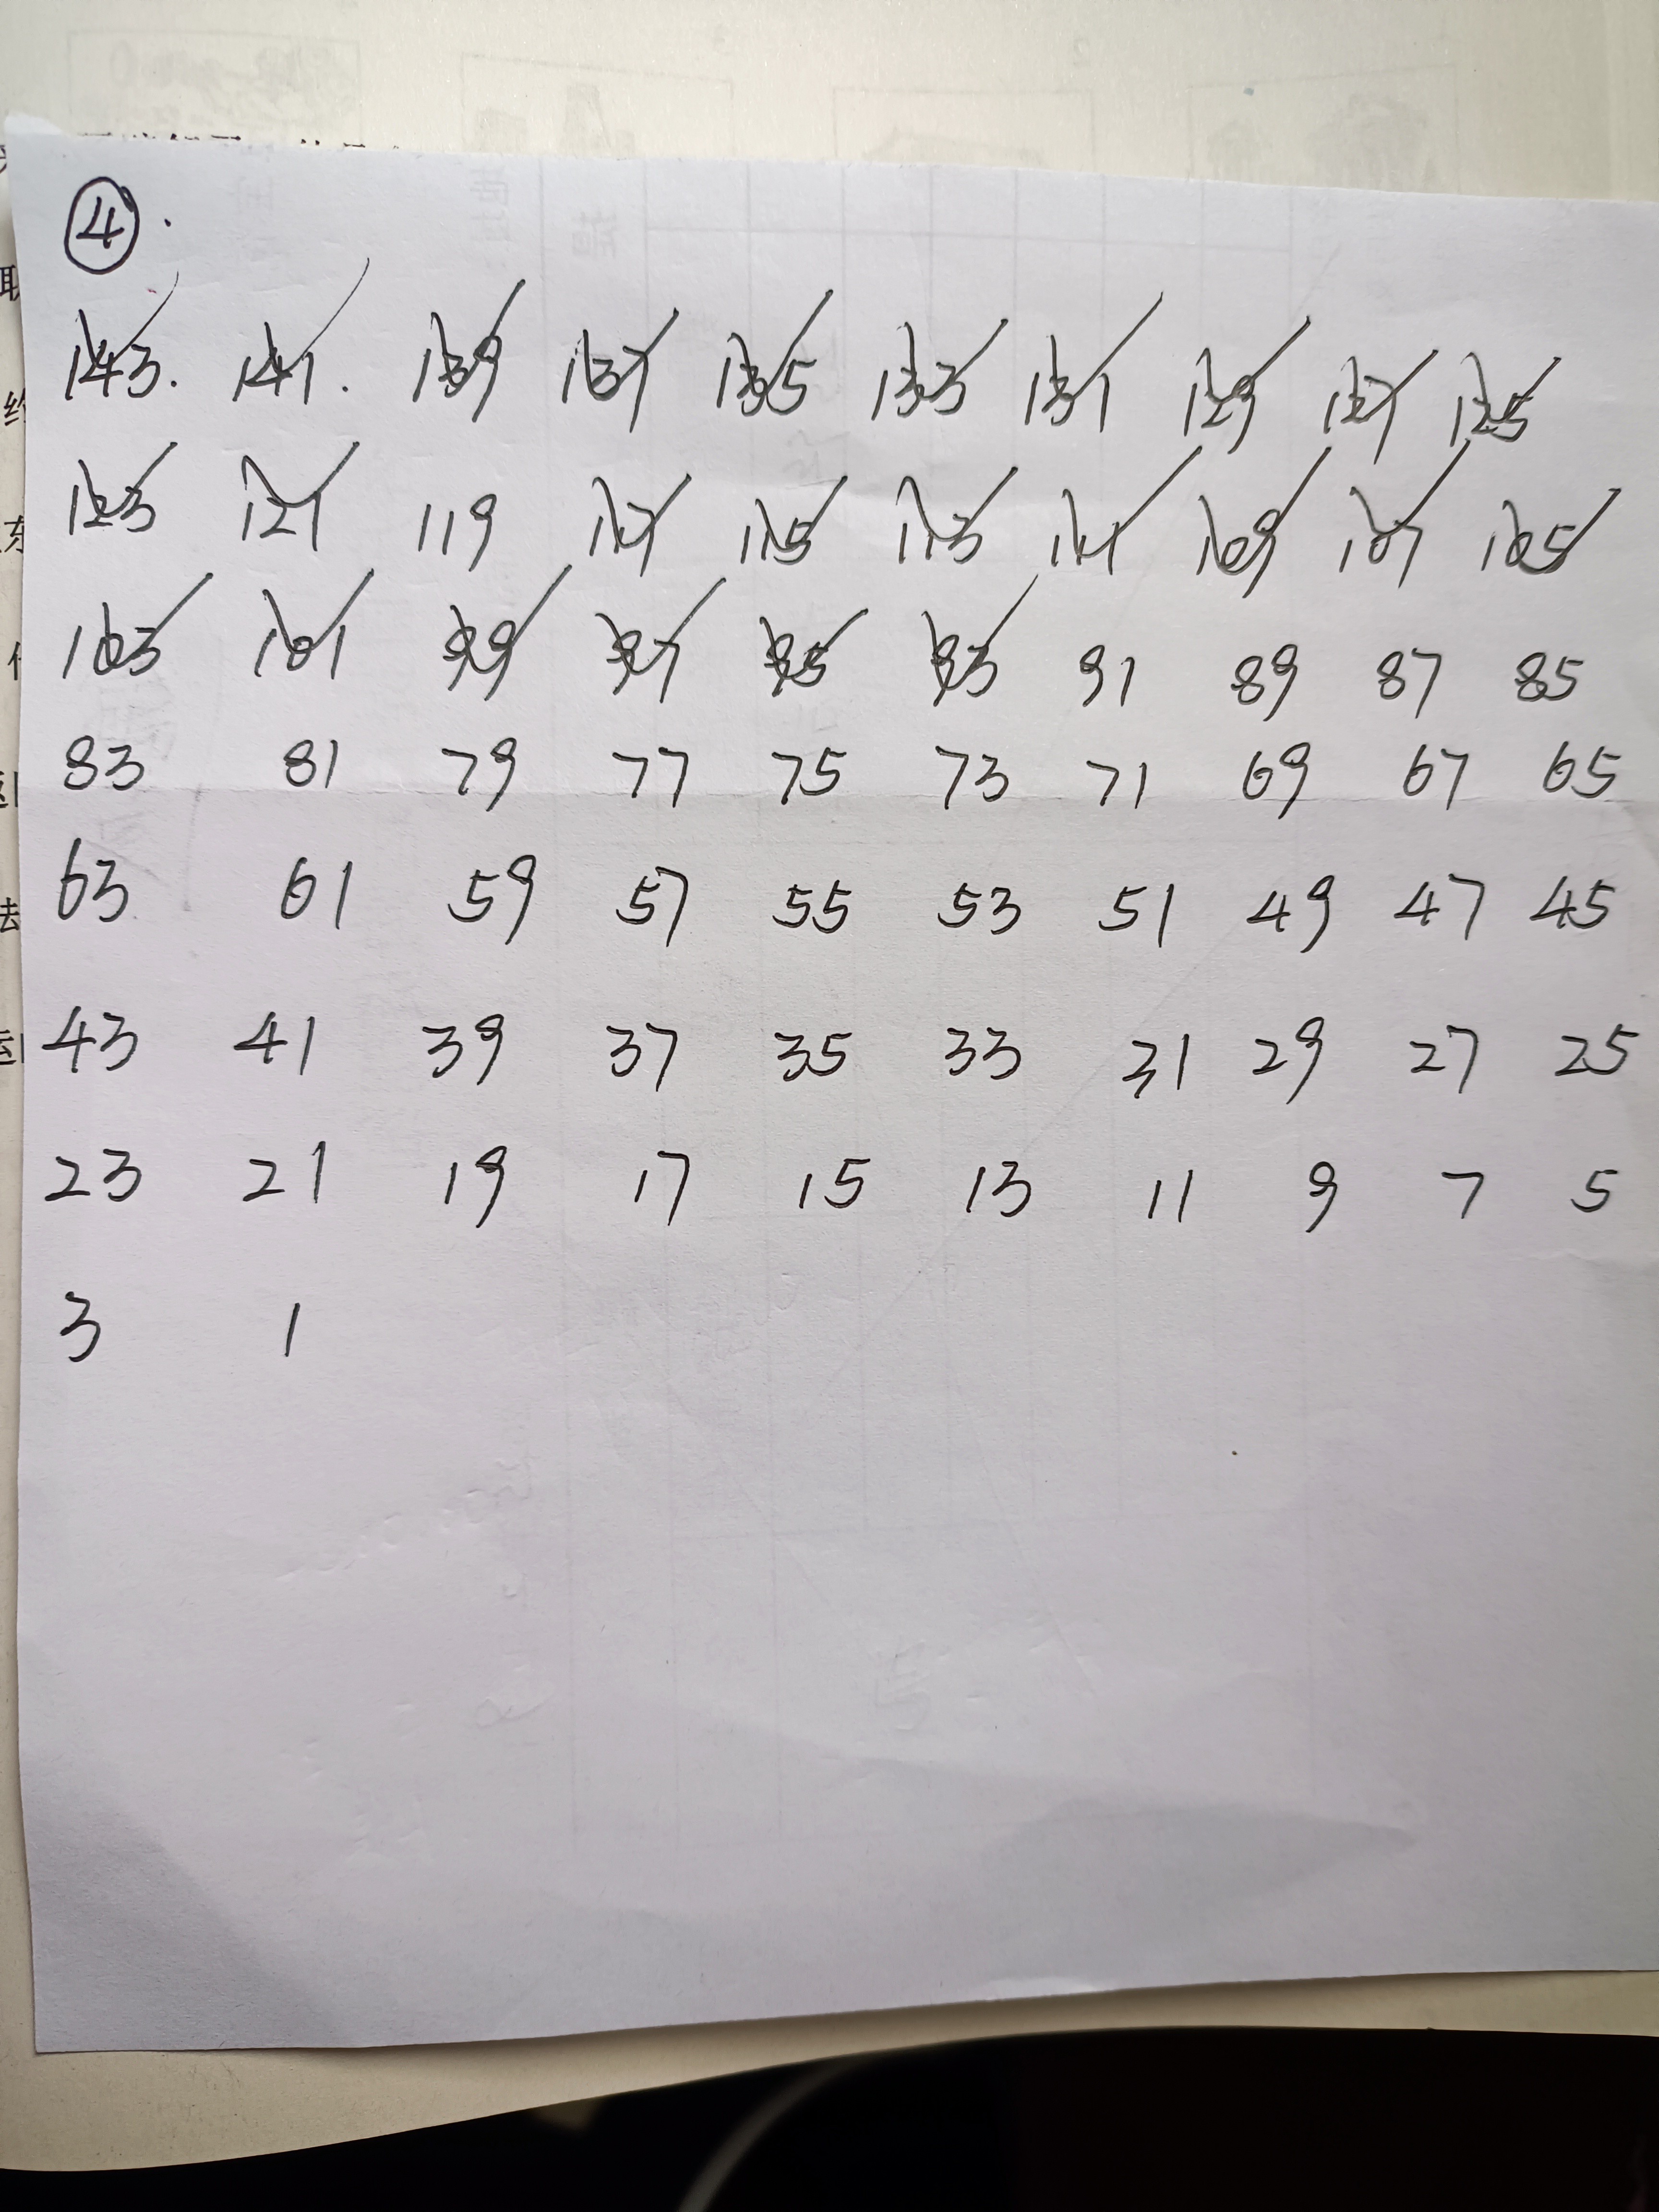 ④.
143. 141. 139 137 135 133 131 129 127 125
123 121 119 117 115 113 111 109 107 105
103 101 99 97 95 93 91 89 87 85
83 81 79 77 75 73 71 69 67 65
63 61 59 57 55 53 51 49 47 45
43 41 39 37 35 33 31 29 27 25
23 21 19 17 15 13 11 9 7 5
3 1